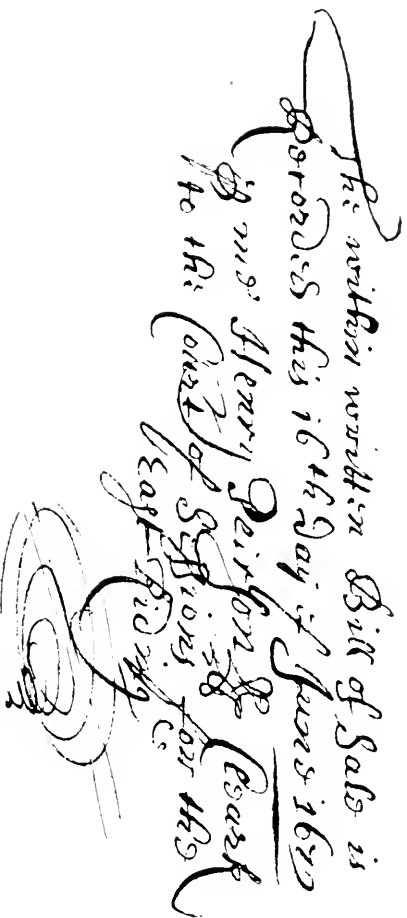 The within written Bill of Sale is
Recorded this 16th Day of June
By me Henry Peirson Cleark
to the Court of Sessions for the
East Riding